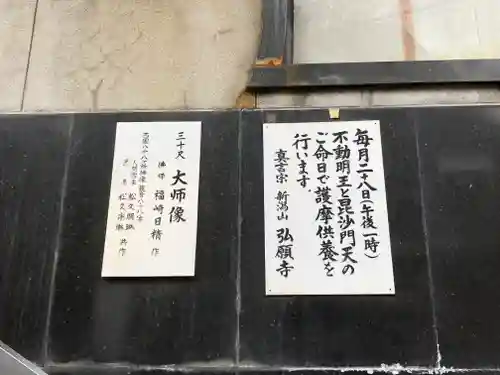 毎月二十八日(午後一時)
不動明王と毘沙門天の
ご命日で護摩供養を
行います。
真言宗 新潟山 弘願寺
三十尺 大师像
福崎日精 作
松久朋琳
松久宗琳 共作